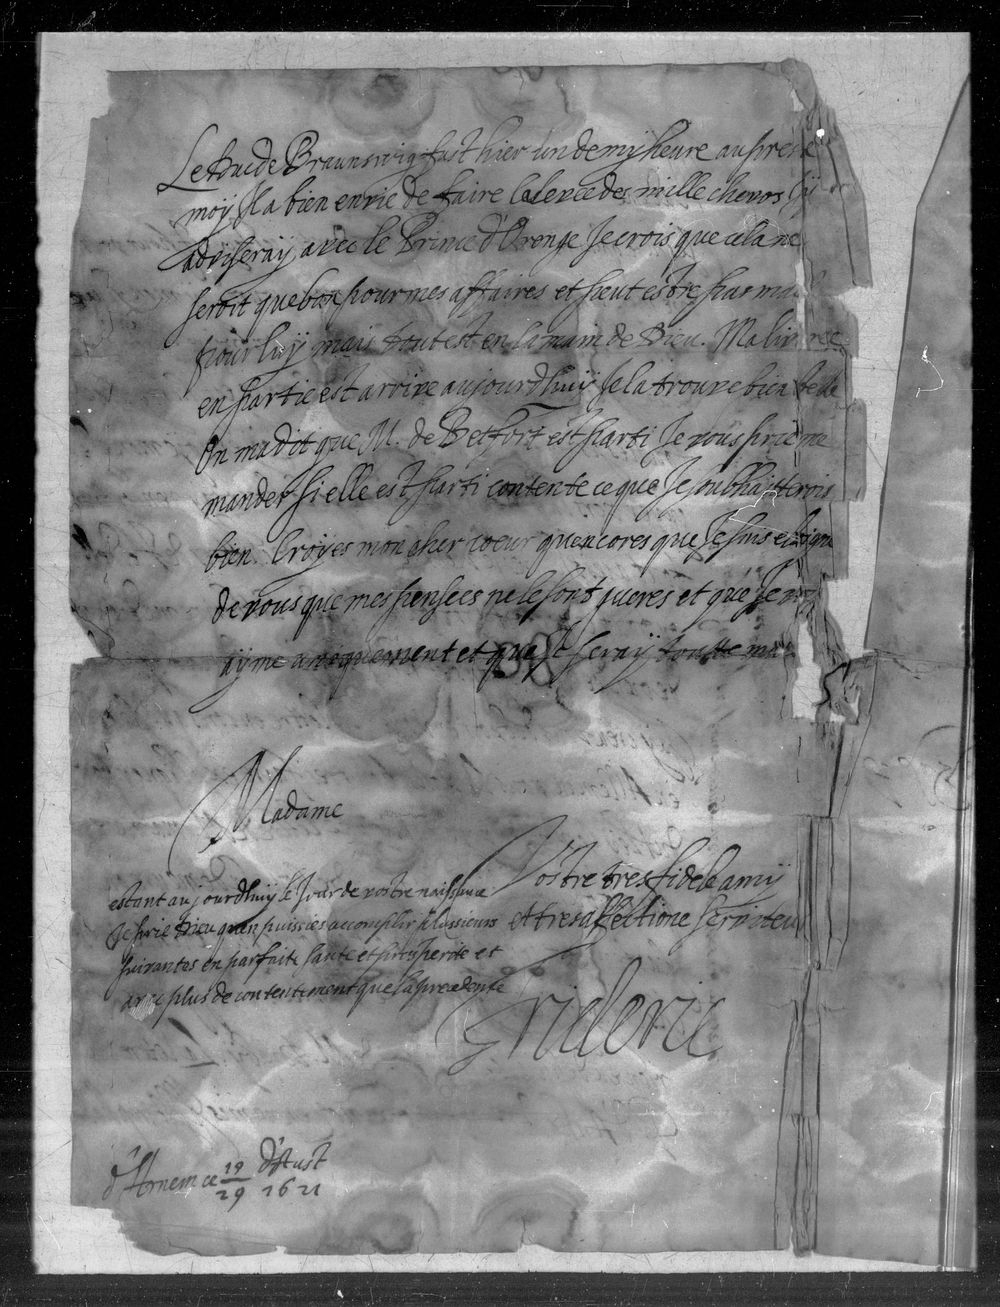 Le Duc de Brunswig fust hier un demy heure aupres de
moy Il a bien envie de faire la levee des mille chevos Jy
adviseray avec le Prince d'Orenge Je crois que cela ne
seroit que bon pour mes affaires et peut estre pas ma
pour luy mais tout est en la main de Dieu. Ma livree
en partie est arrive aujourdhuÿ Je la trouve bien belle
On ma dit que M. de Betfort est parti Je vous prie me
mander si elle est parti contente ce que Je souhaitterois
bien. Croyes mon cher coeur quencores que Je suis esloigne
de vous que mes pensees ne le sont gueres et que Je v
ayme uniquement et que Je seray toutte ma
Madame
Vostre tres fidele amy
et tres affectione serviteur
Frideric
estant aujourdhuy le Jour de vostre naissance
Je prie Dieu quen puissies accomplir plussieurs
suivantes en parfaite sante et prosperite et
avec plus de contentement que la precedente
d'Arnem ce 19/29 d'Aust 1621